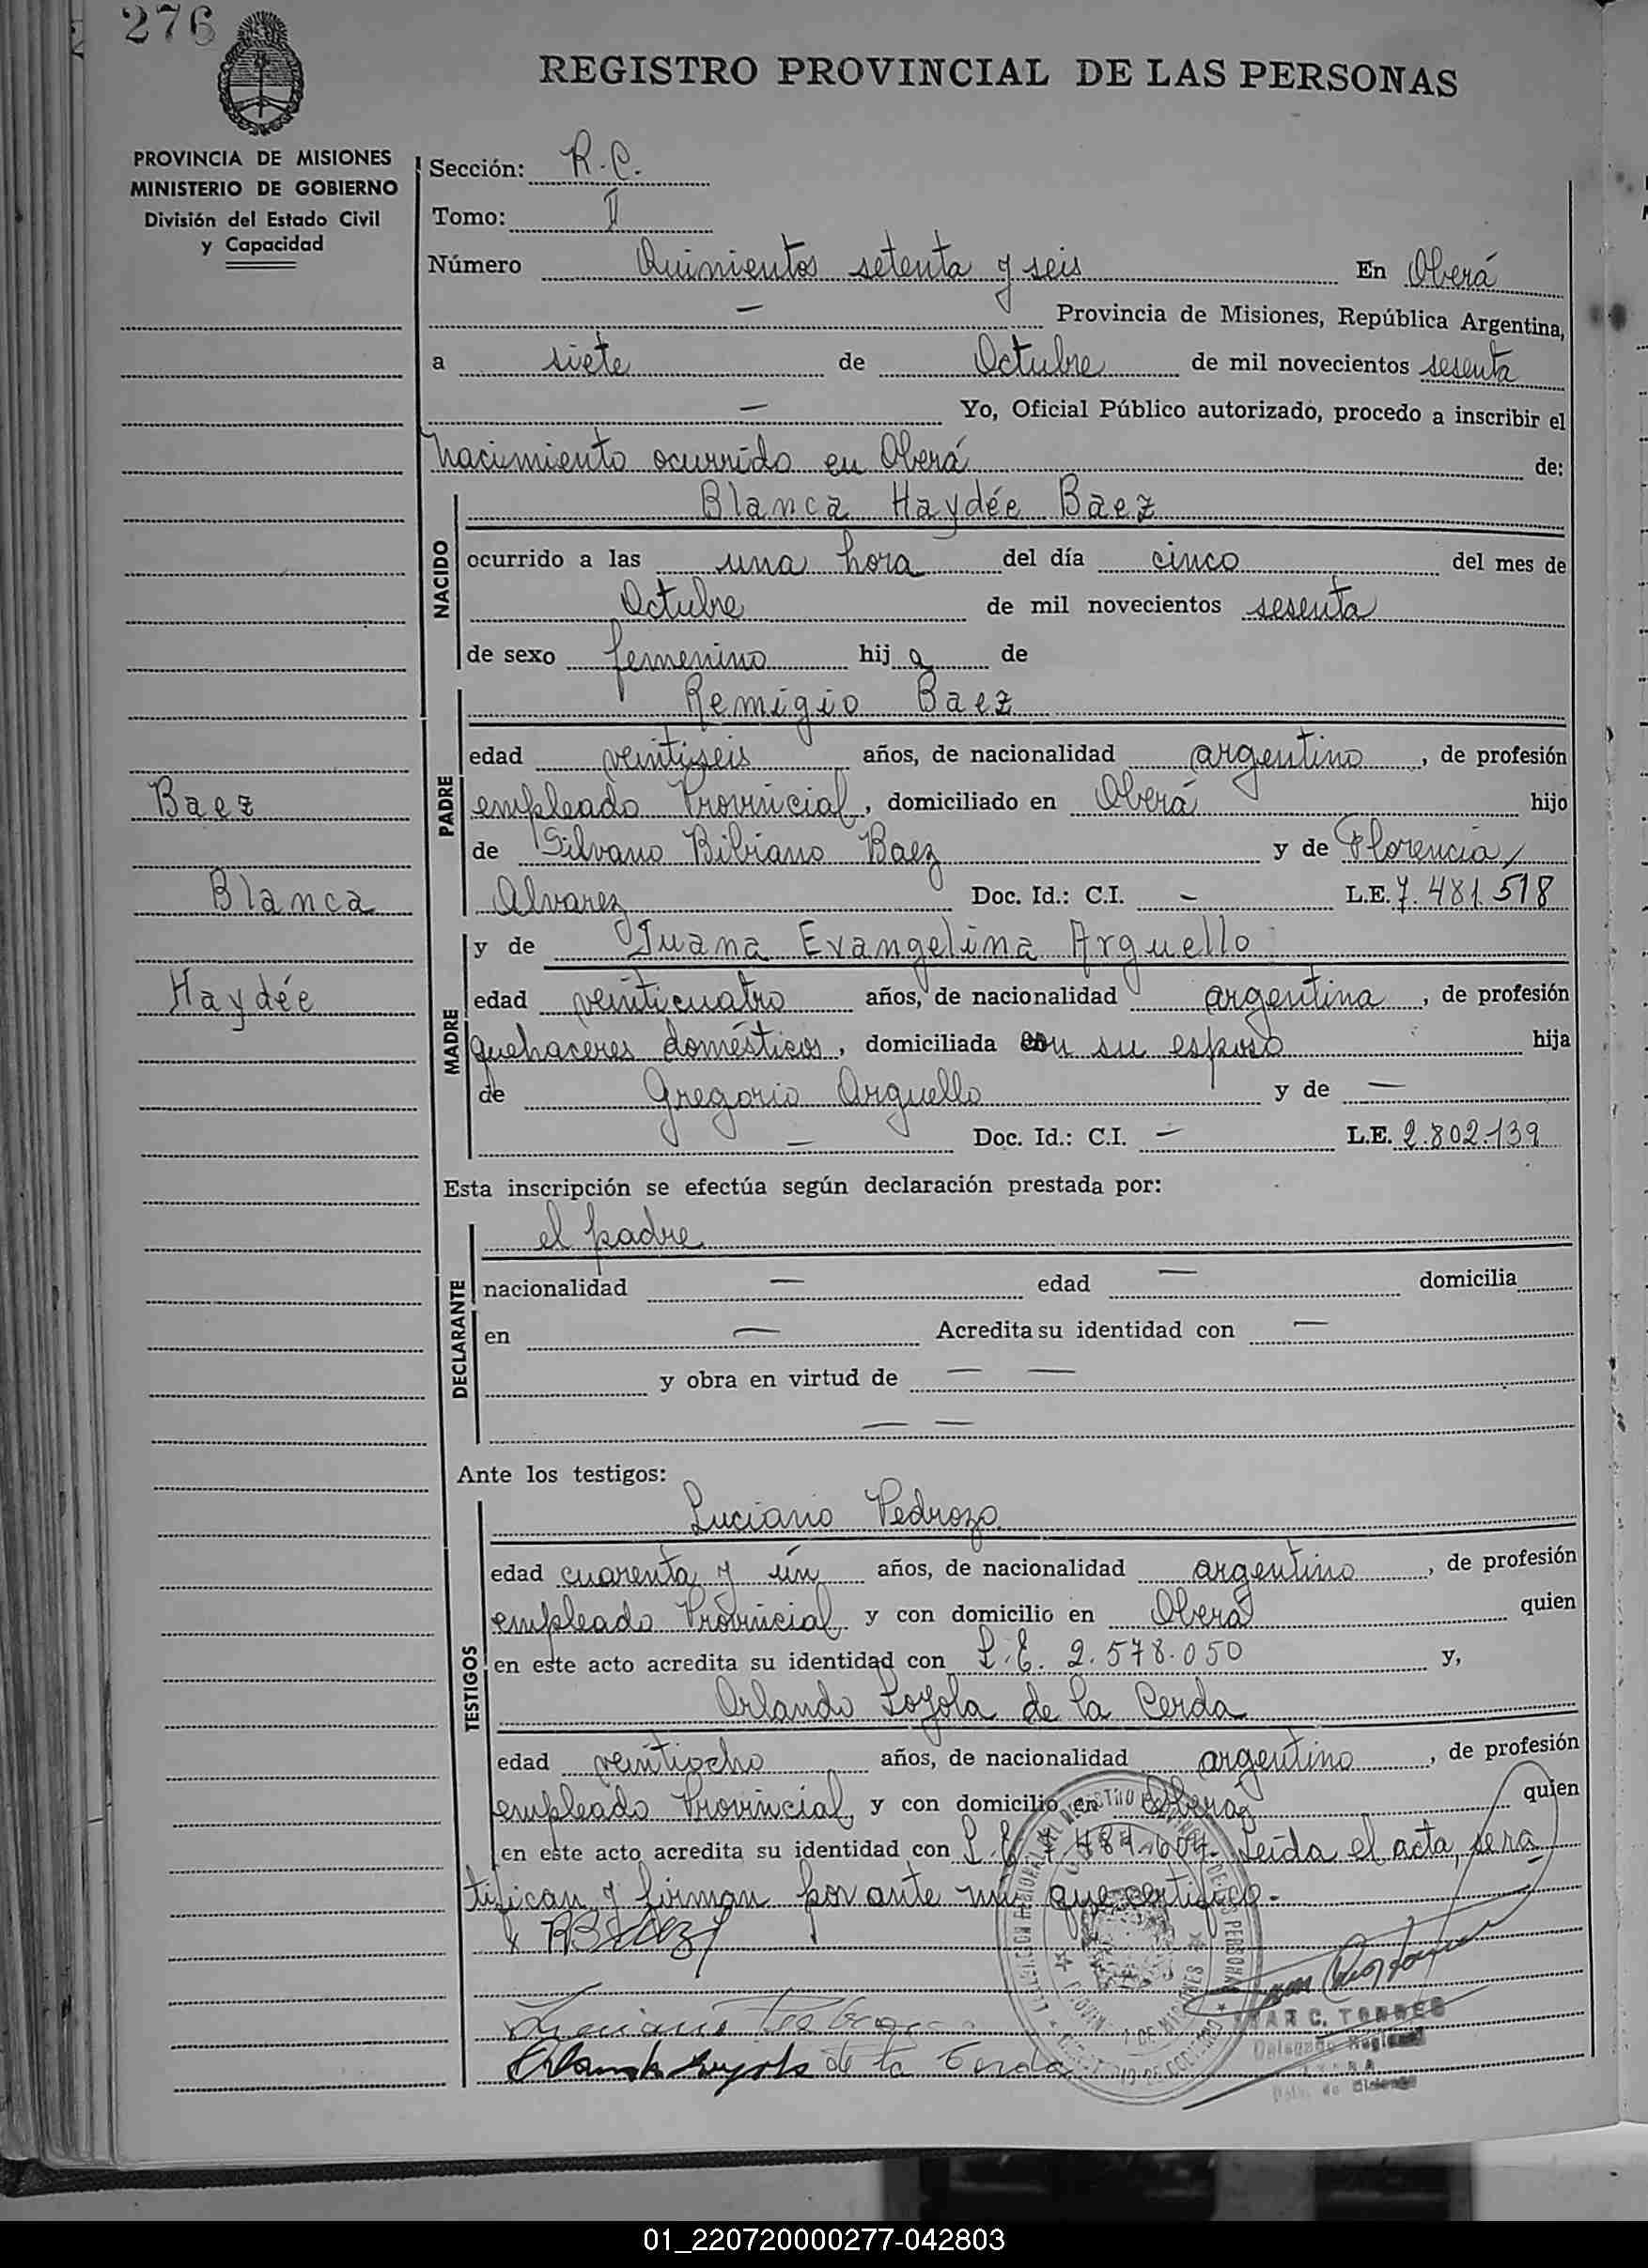 276
REGISTRO PROVINCIAL DE LAS PERSONAS
PROVINCIA DE MISIONES
MINISTERIO DE GOBIERNO
División del Estado Civil
y Capacidad
Sección: R.C.
Tomo: II
Número Quinientos setenta y seis En Oberá
— Provincia de Misiones, República Argentina,
a siete de Octubre de mil novecientos sesenta
— Yo, Oficial Público autorizado, procedo a inscribir el
nacimiento ocurrido en Oberá de:
NACIDO
Blanca Haydée Baez
ocurrido a las una hora del día cinco del mes de
Octubre de mil novecientos sesenta
de sexo femenino hij a de
PADRE
Remigio Baez
edad veintiseis años, de nacionalidad argentino, de profesión
empleado Provincial, domiciliado en Oberá hijo
de Silvano Bibiano Baez y de Florencia
Alvarez Doc. Id.: C.I. — L.E. 7.481.518
Baez
Blanca
Haydée
MADRE
y de Juana Evangelina Arguello
edad veinticuatro años, de nacionalidad argentina, de profesión
quehaceres domésticos, domiciliada con su esposo hija
de Gregorio Arguello y de —
— Doc. Id.: C.I. — L.E. 2.802.139
Esta inscripción se efectúa según declaración prestada por:
DECLARANTE
el padre
nacionalidad — edad — domicilia
en — Acredita su identidad con —
y obra en virtud de — —
— —
Ante los testigos:
TESTIGOS
Luciano Pedrozo
edad cuarenta y ún años, de nacionalidad argentino, de profesión
empleado Provincial y con domicilio en Oberá quien
en este acto acredita su identidad con L.E. 2.578.050 y,
Orlando Loyola de la Cerda
edad veintiocho años, de nacionalidad argentino, de profesión
empleado Provincial, y con domicilio en Oberá quien
en este acto acredita su identidad con L.E. Leida el acta, se ra
tifican y firman por ante mi que certifico.-
RBaez
Luciano Pedrozo
Orlando Loyola de la Cerda
C. TORRES
Delegado Regional
01_220720000277-042803